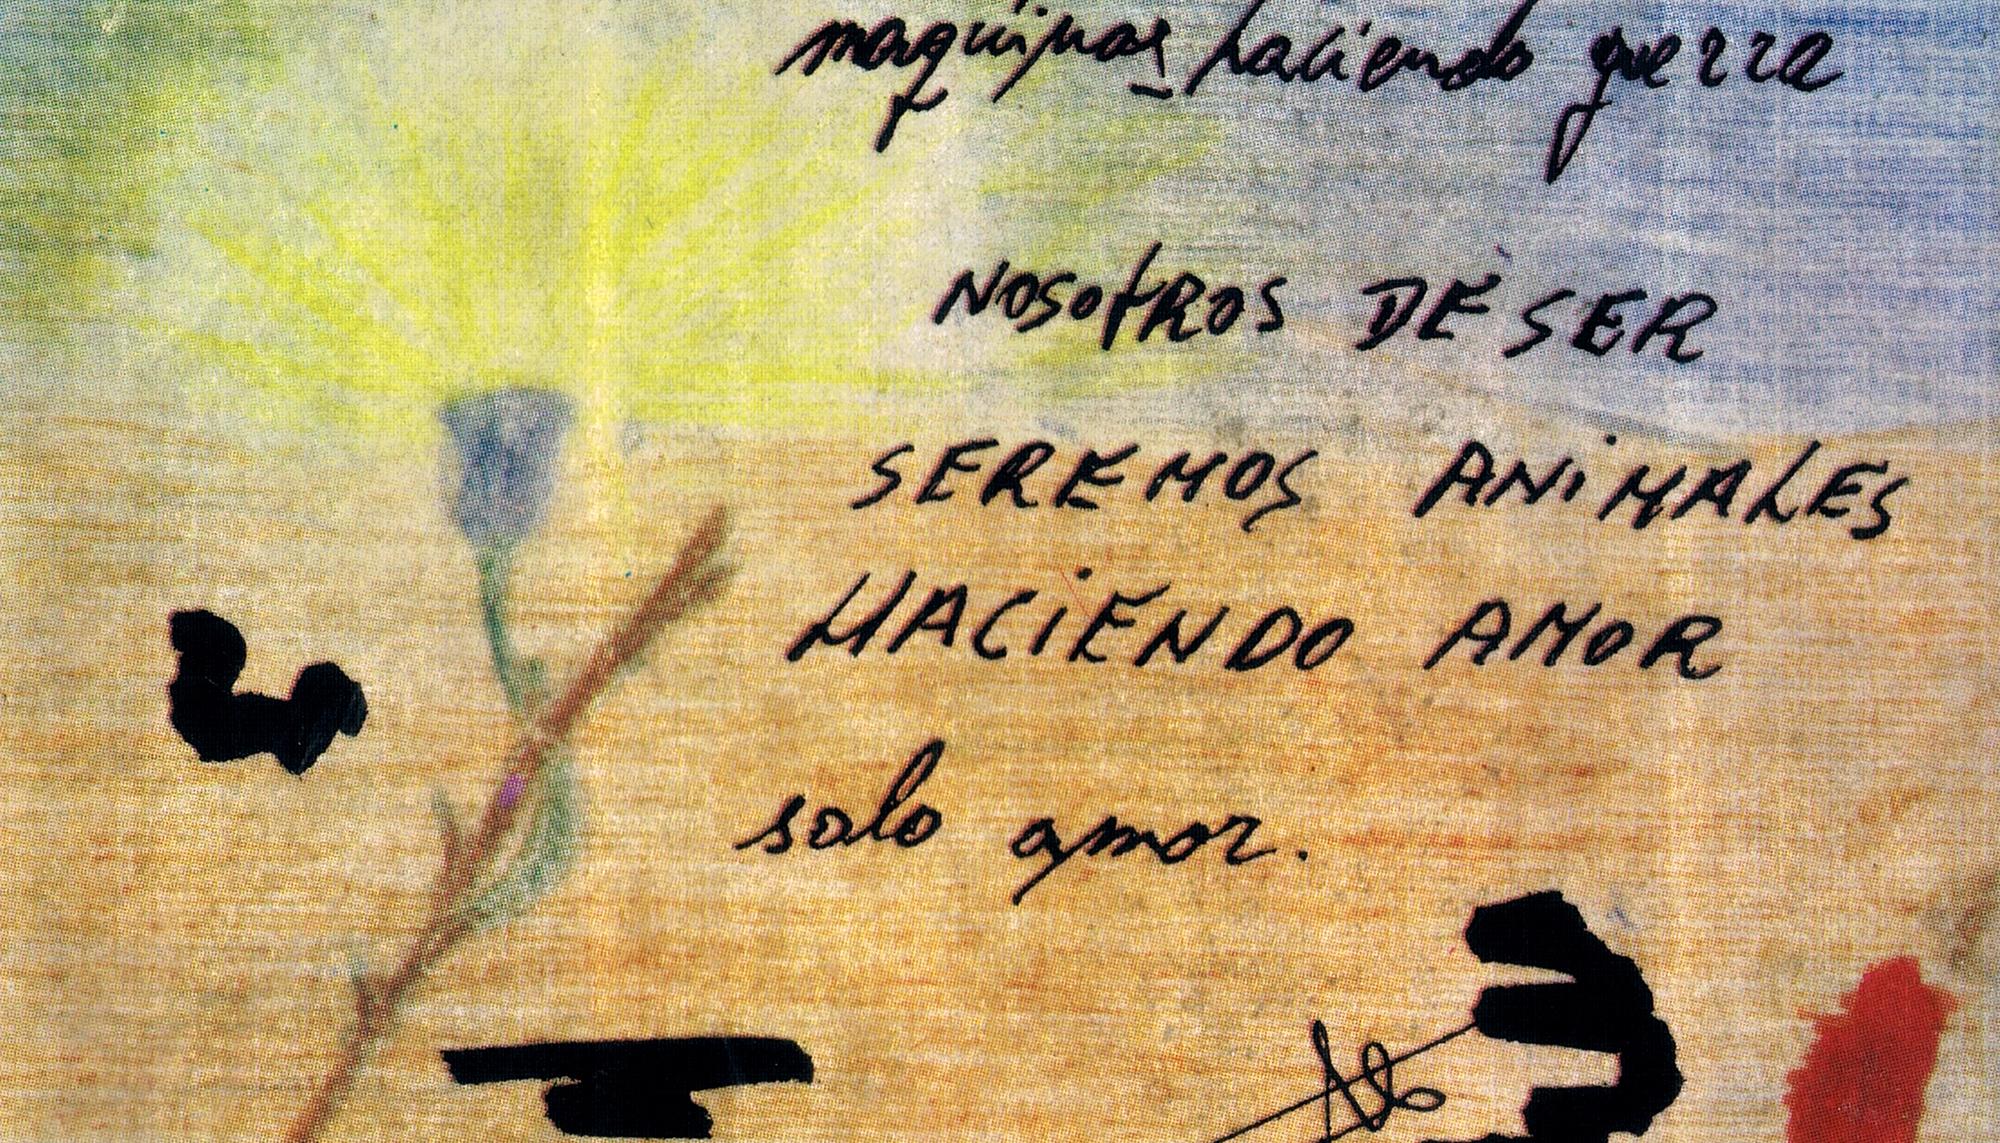 maquinas haciendo guerra
NOSOTROS DE SER
SEREMOS ANiMALES
HACiENDO AMOR
solo amor.